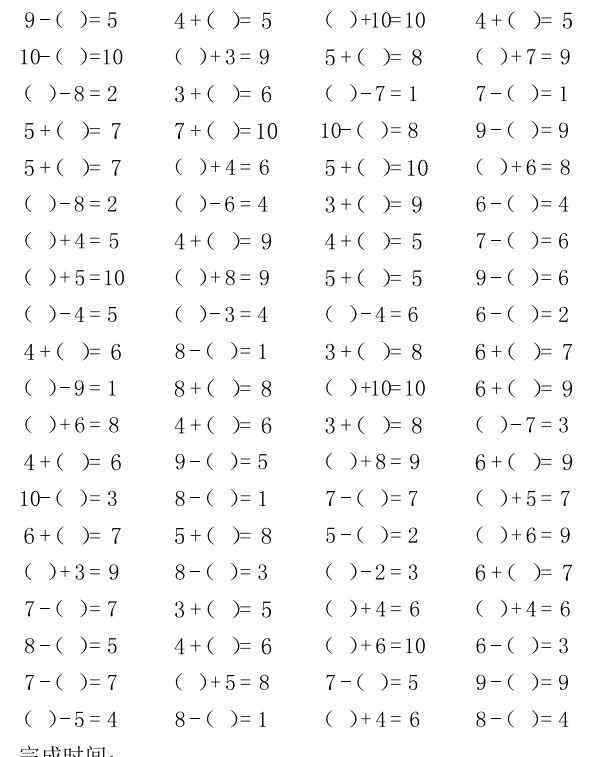 9－(  )＝5  4＋(  )＝5  (  )＋10＝10  4＋(  )＝5
10－(  )＝10  (  )＋3＝9  5＋(  )＝8  (  )＋7＝9
(  )－8＝2  3＋(  )＝6  (  )－7＝1  7－(  )＝1
5＋(  )＝7  7＋(  )＝10  10－(  )＝8  9－(  )＝9
5＋(  )＝7  (  )＋4＝6  5＋(  )＝10  (  )＋6＝8
(  )－8＝2  (  )－6＝4  3＋(  )＝9  6－(  )＝4
(  )＋4＝5  4＋(  )＝9  4＋(  )＝5  7－(  )＝6
(  )＋5＝10  (  )＋8＝9  5＋(  )＝5  9－(  )＝6
(  )－4＝5  (  )－3＝4  (  )－4＝6  6－(  )＝2
4＋(  )＝6  8－(  )＝1  3＋(  )＝8  6＋(  )＝7
(  )－9＝1  8＋(  )＝8  (  )＋10＝10  6＋(  )＝9
(  )＋6＝8  4＋(  )＝6  3＋(  )＝8  (  )－7＝3
4＋(  )＝6  9－(  )＝5  (  )＋8＝9  6＋(  )＝9
10－(  )＝3  8－(  )＝1  7－(  )＝7  (  )＋5＝7
6＋(  )＝7  5＋(  )＝8  5－(  )＝2  (  )＋6＝9
(  )＋3＝9  8－(  )＝3  (  )－2＝3  6＋(  )＝7
7－(  )＝7  3＋(  )＝5  (  )＋4＝6  (  )＋4＝6
8－(  )＝5  4＋(  )＝6  (  )＋6＝10  6－(  )＝3
7－(  )＝7  (  )＋5＝8  7－(  )＝5  9－(  )＝9
(  )－5＝4  8－(  )＝1  (  )＋4＝6  8－(  )＝4
完成时间：